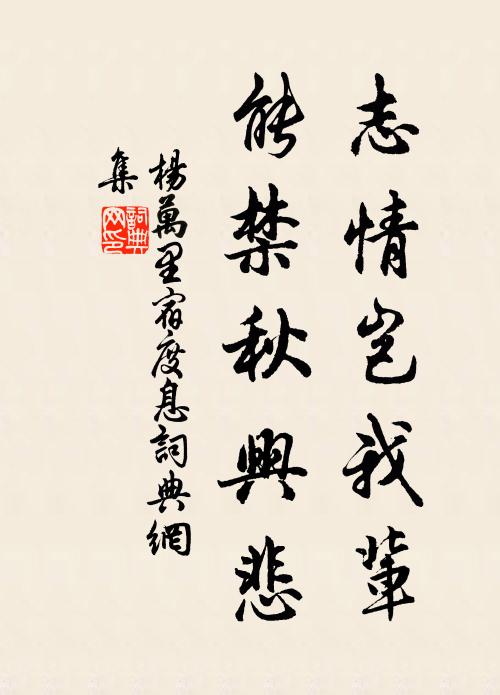 志情岂我輩
能禁秋興悲
楊萬里宿度息詞典網
集
詞典
网印